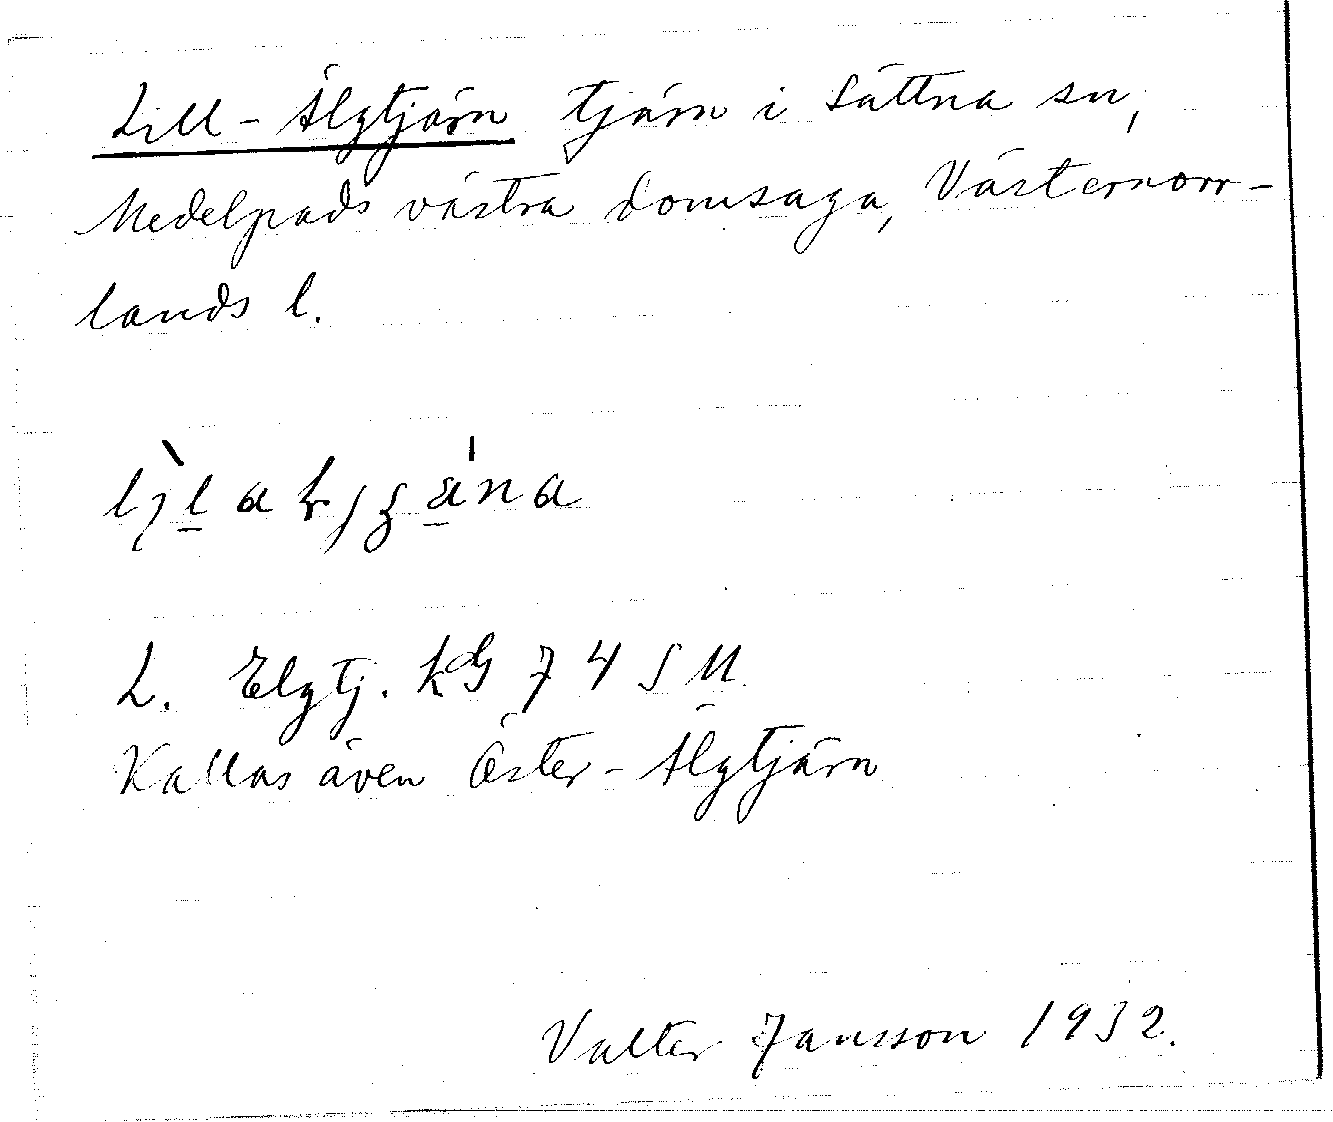 Lill-Älgtjärn tjärn i Sättna sn,
Medelpads västra domsaga, Västernorr-
lands l.
L. Elgtj. kG 74 SM
Kallas även Öster-Älgtjärn
Valter Jansson 1932.